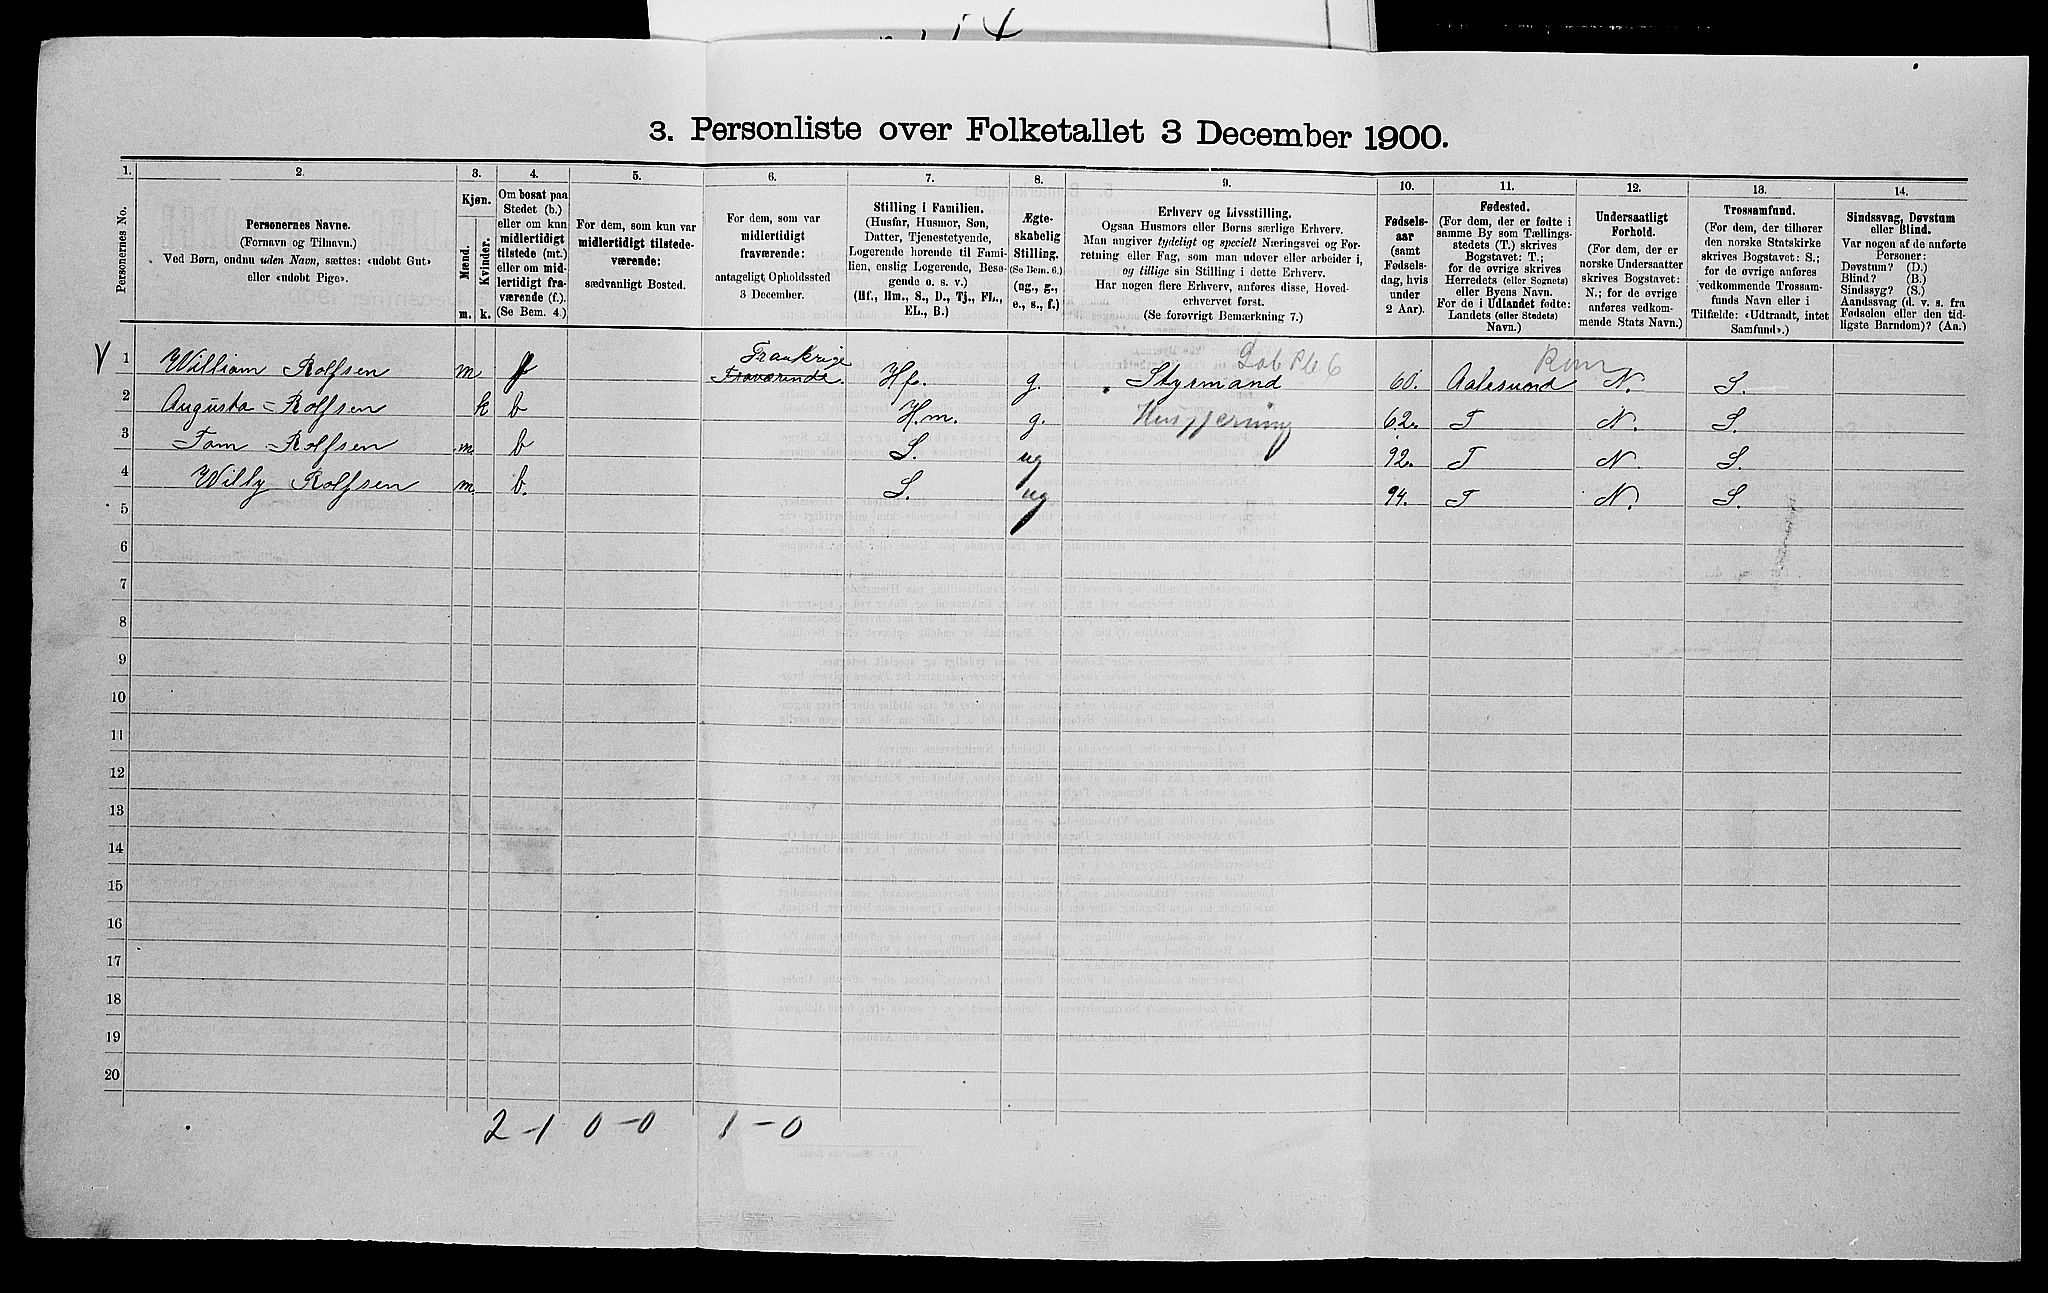 3. Personliste over Folketallet 3 December 1900.
1. 2. 3. 4. 5. 6. 7. 8. 9. 10. 11. 12. 13. 14.
Personernes No.
Personernes Navne.
(Fornavn og Tilnavn.)
Ved Børn, endnu uden Navn, sættes: «udobt Gut»
eller «udobt Pige».
Kjøn.
Mænd.
Kvinder.
m. k.
Om bosat paa
Stedet (b.)
eller om kun
midlertidigt
tilstede (mt.)
eller om mid-
lertidigt fra-
værende (f.).
(Se Bem. 4.)
For dem, som kun var
midlertidigt tilstede-
værende:
sædvanligt Bosted.
For dem, som var
midlertidigt
fraværende:
antageligt Opholdssted
3 December.
Stilling i Familien.
(Husfar, Husmor, Søn,
Datter, Tjenestetyende,
Logerende hørende til Fami-
lien, enslig Logerende, Besø-
gende o. s. v.)
(Hf., Hm., S., D., Tj., FL.,
EL., B.)
Ægte-
skabelig
Stilling.
(Se Bem. 6.)
(ug., g.,
e., s., f.)
Erhverv og Livsstilling.
Ogsaa Husmors eller Børns særlige Erhverv.
Man angiver tydeligt og specielt Næringsvei og For-
retning eller Fag, som man udøver eller arbeider i,
og tillige sin Stilling i dette Erhverv.
Har nogen flere Erhverv, anføres disse, Hoved-
erhvervet først.
(Se forøvrigt Bemærkning 7.)
Fødsels-
aar
(samt
Fødsels-
dag, hvis
under
2 Aar).
Fødested.
(For dem, der er fødte i
samme By som Tællings-
stedets (T.) skrives
Bogstavet: T.;
for de øvrige skrives
Herredets (eller Sognets)
eller Byens Navn.
For de i Udlandet fødte:
Landets (eller Stedets)
Navn.)
Undersaatligt
Forhold.
(For dem, der er
norske Undersaatter
skrives Bogstavet:
N.; for de øvrige
anføres vedkom-
mende Stats Navn.)
Trossamfund.
(For dem, der tilhører
den norske Statskirke
skrives Bogstavet: S.;
for de øvrige anføres
vedkommende Trossam-
funds Navn eller i
Tilfælde: «Udtraadt, intet
Samfund».)
Sindssvag, Døvstum
eller Blind.
Var nogen af de anførte
Personer:
Døvstum? (D.)
Blind? (B.)
Sindssyg? (S.)
Aandssvag (d. v. s. fra
Fødselen eller den tid-
ligste Barndom)? (Aa.)
V 1 William Rolfsen m f Frankrige Fraværende. Hf. g. Styrmand 60. Aalesund N. S.
2 Augusta Rolfsen k b H.m. g. Husgjerning 62. T N. S.
3 Tom Rolfsen m b S. ug 92. T N. S.
4 Willy Rolfsen m b. S. ug 94. T N. S.
5
6
7
8
9
10
11
12
13
14
15
16
17
18
19
20
2-1 0-0 1-0